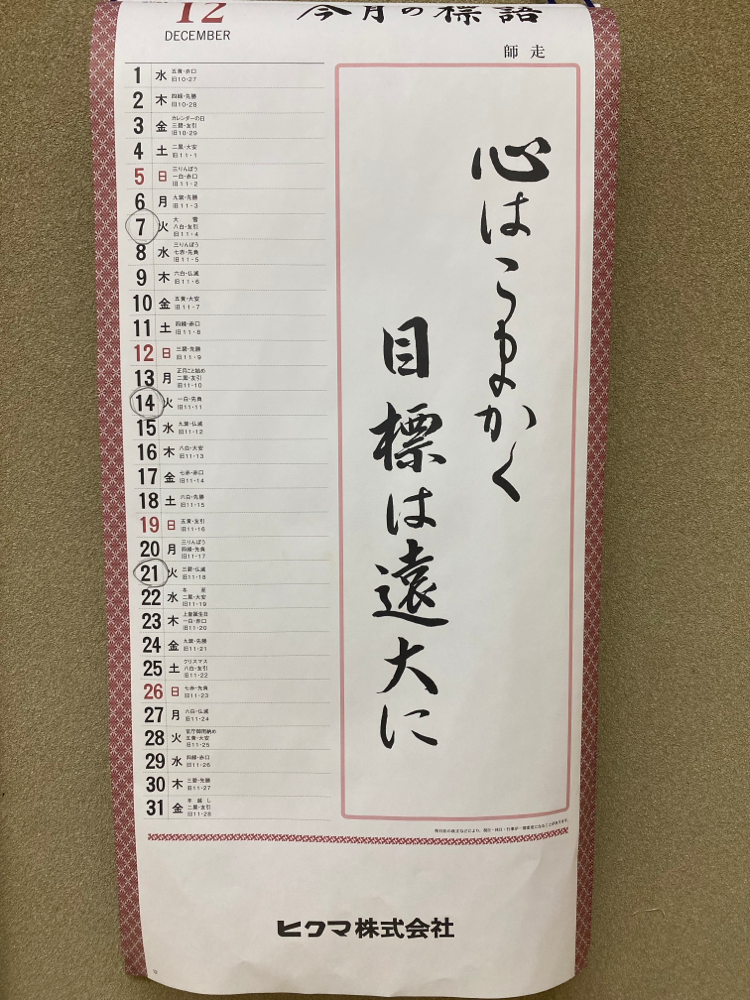 12
今月の標語
DECEMBER
師走
心はこまかく
目標は遠大に
1 水 五黄・赤口 旧10・27
2 木 四緑・先勝 旧10・28
3 金 カレンダーの日 三碧・友引 旧10・29
4 土 二黒・大安 旧11・1
5 日 三りんぼう 一白・赤口 旧11・2
6 月 九紫・先勝 旧11・3
7 火 大雪 八白・友引 旧11・4
8 水 三りんぼう 七赤・先負 旧11・5
9 木 六白・仏滅 旧11・6
10 金 五黄・大安 旧11・7
11 土 四緑・赤口 旧11・8
12 日 三碧・先勝 旧11・9
13 月 正月こと始め 二黒・友引 旧11・10
14 火 一白・先負 旧11・11
15 水 九紫・仏滅 旧11・12
16 木 八白・大安 旧11・13
17 金 七赤・赤口 旧11・14
18 土 六白・先勝 旧11・15
19 日 五黄・友引 旧11・16
20 月 三りんぼう 四緑・先負 旧11・17
21 火 三碧・仏滅 旧11・18
22 水 冬至 二黒・大安 旧11・19
23 木 上皇誕生日 一白・赤口 旧11・20
24 金 九紫・先勝 旧11・21
25 土 クリスマス 八白・友引 旧11・22
26 日 七赤・先負 旧11・23
27 月 六白・仏滅 旧11・24
28 火 官庁御用納め 五黄・大安 旧11・25
29 水 四緑・赤口 旧11・26
30 木 三碧・先勝 旧11・27
31 金 年越し 二黒・友引 旧11・28
ヒクマ株式会社